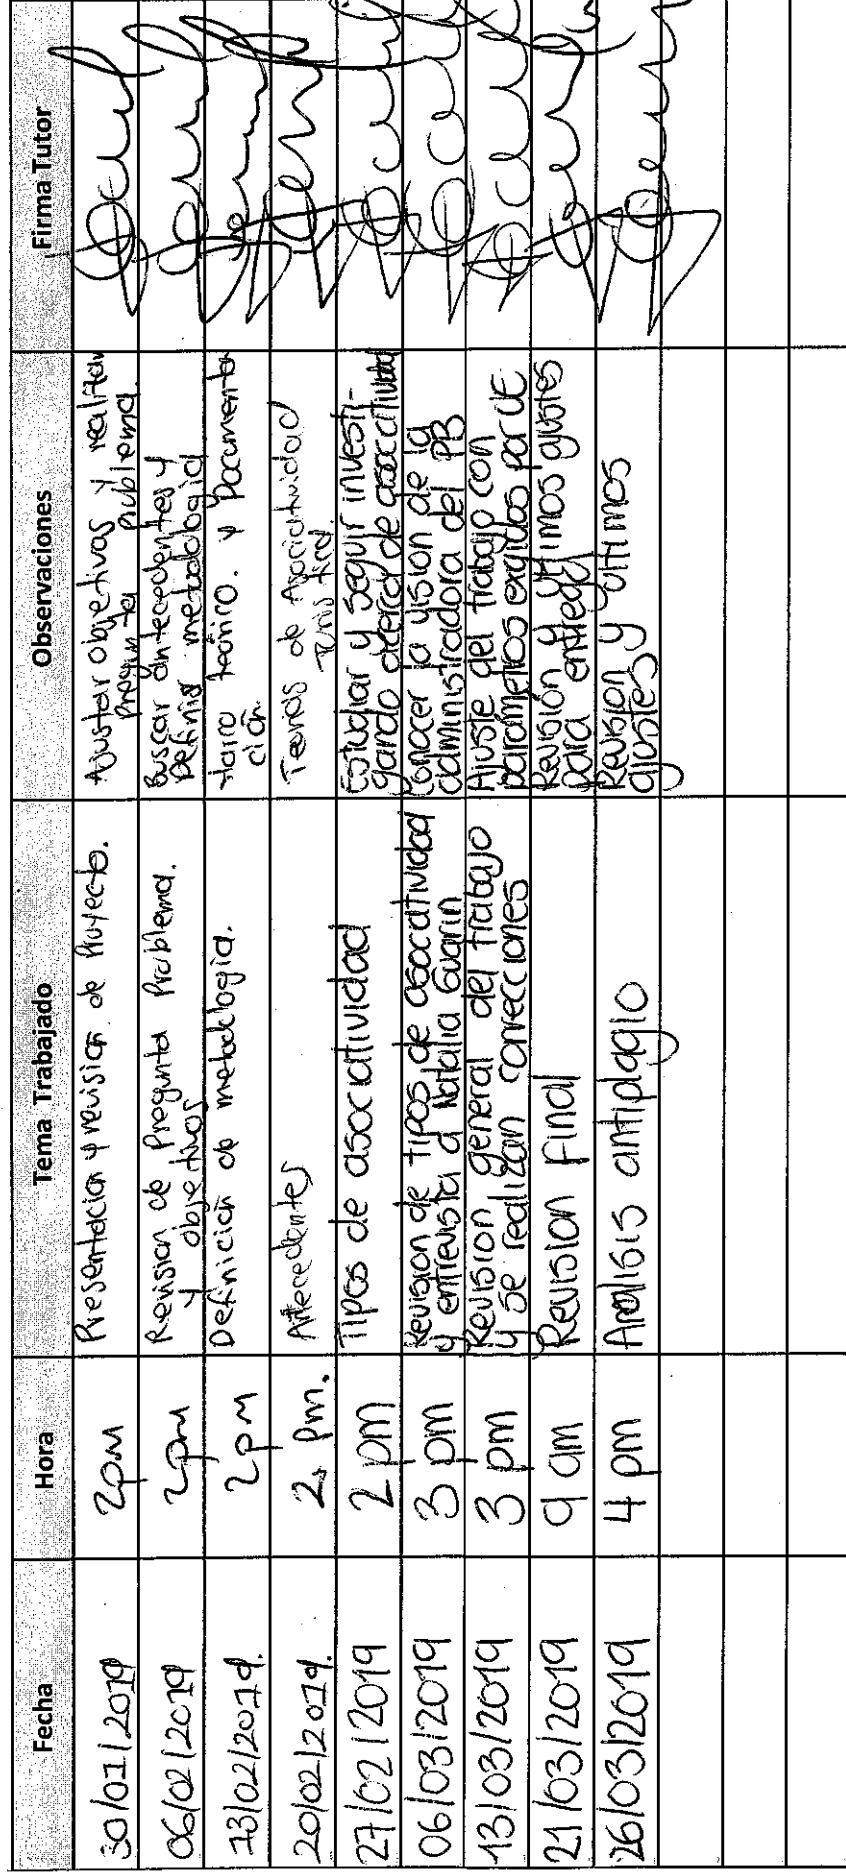 Fecha Hora Tema Trabajado Observaciones Firma Tutor
30/01/2019 2pm Presentación y revisión de Proyecto. Ajustar objetivos y realizar
pregunta problema.
06/02/2019 2pm Revisión de Pregunta Problema. Buscar antecedentes y
y objetivos Definir metodología
13/02/2019. 2pm Definición de metodología. Marco teórico. y Documenta
ción.
20/02/2019. 2 pm. Antecedentes Teorías de Asociatividad
27/02/2019 2 pm Tipos de asociatividad Estudiar y seguir investi-
gando acerca de asociatividad
06/03/2019 3 pm Revisión de tipos de asociatividad Conocer la visión de la
y entrevista a Natalia Guarin administradora del PB
13/03/2019 3 pm Revisión general del trabajo Ajuste del trabajo con
y se realizan correcciones parámetros exigidos por UE
21/03/2019 9 am Revisión Final Revisión y últimos ajustes
para entrega
26/03/2019 4 pm Analisis antiplagio Revisión y ultimos
ajustes